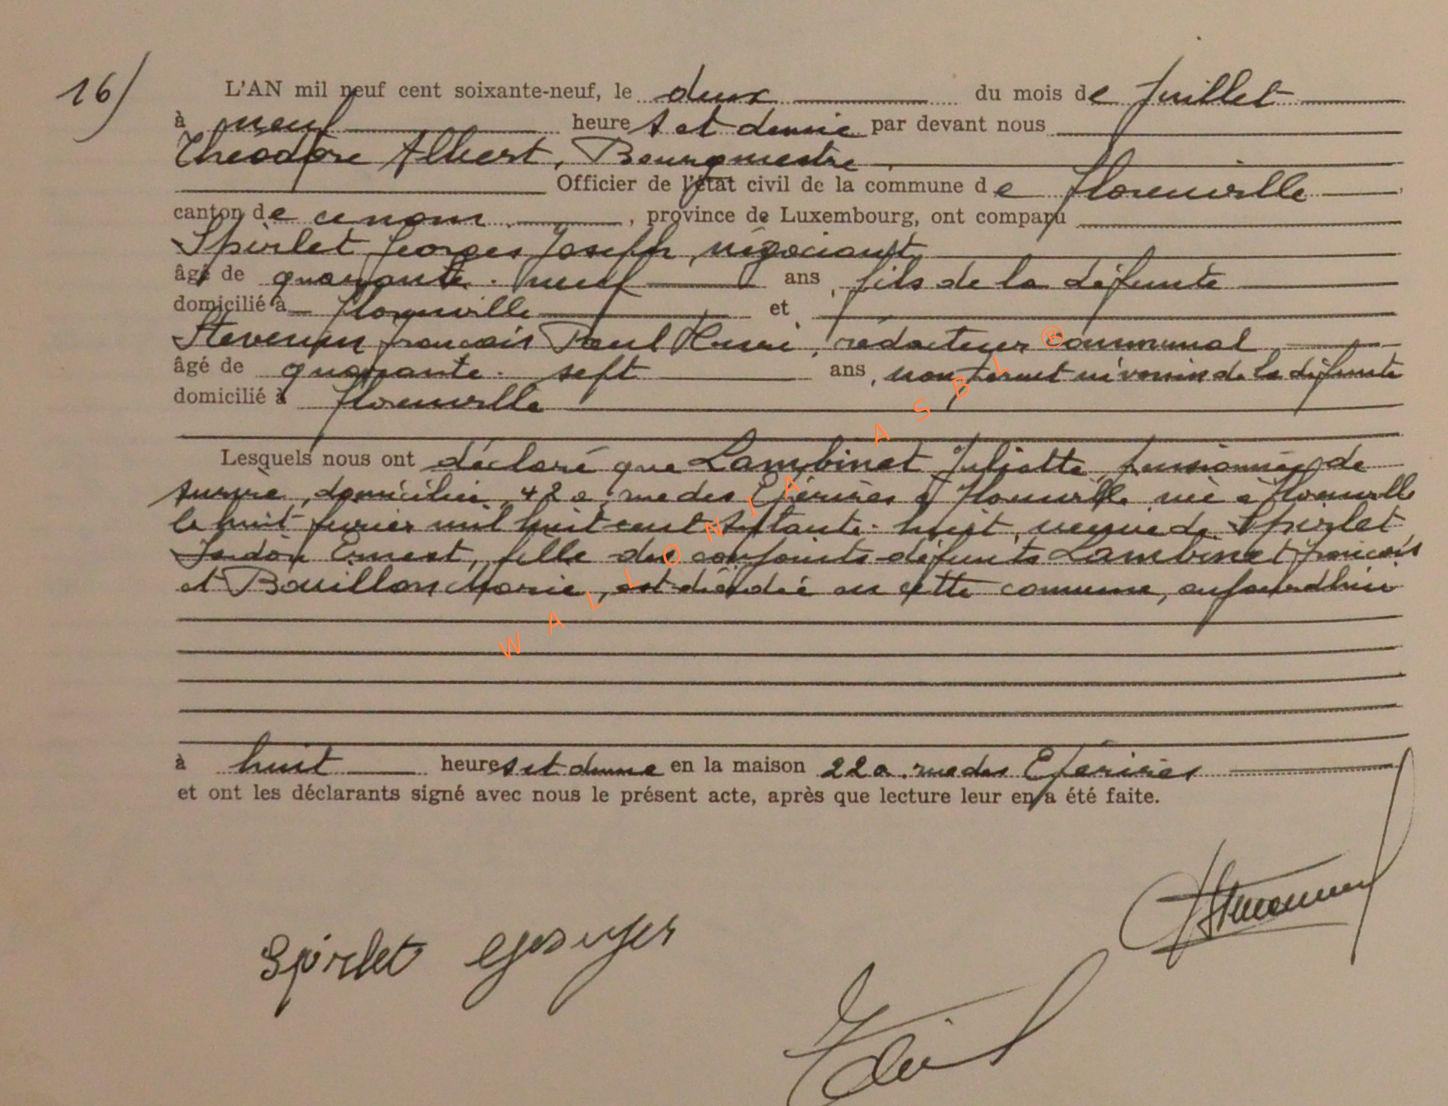 16/ L'AN mil neuf cent soixante-neuf, le deux du mois de Juillet
à neuf heures et demie par devant nous
Théodore Albert, Bourgmestre
Officier de l'état civil de la commune de Florenville
canton de ce nom, province de Luxembourg, ont comparu
Spirlet Georges Joseph, négociant
âgé de quarante-neuf ans, fils de la défunte
domicilié à Florenville et
Stevenin François Paul Henri, rédacteur communal
âgé de quarante-sept ans, non parent ni voisin de la défunte
domicilié à Florenville
Lesquels nous ont déclaré que Lambinet Juliette, pensionnée de
survie, domiciliée, 42a, rue des Epérires à Florenville née à Florenville
le huit février mil huit cent septante-huit, veuve de Spirlet
Isidore Ernest, fille des conjoints défunts Lambinet François
et Bouillon Marie, est décédée en cette commune, aujourd'hui
à huit heures et demie en la maison 22a, rue des Epérires
et ont les déclarants signé avec nous le présent acte, après que lecture leur en a été faite.
Spirlet
WALLONIA ASBL ®